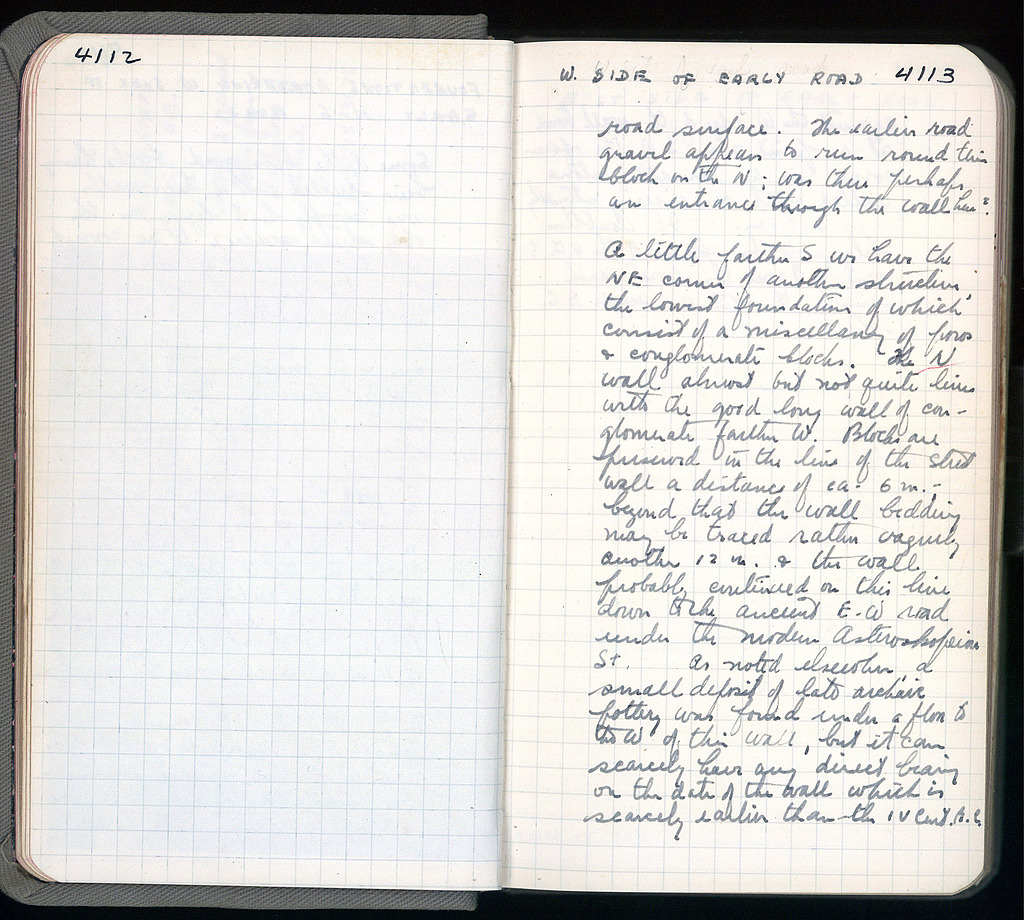 4112
W. SIDE OF EARLY ROAD 4113
road surface. The earlier road
gravel appears to run round this
block on the N; was there perhaps
an entrance through the wall here?
A little farther S we have the
NE corner of another structure,
the lowest foundations of which
consist of a miscellany of poros
& conglomerate blocks. The N
wall almost but not quite lines
with the good long wall of con-
glomerate farther W. Blocks are
preserved in the line of the street
wall a distance of ca. 6 m.;
beyond that the wall bedding
may be traced rather vaguely
another 12 m. & the wall
probably continued on this line
down to the ancient E-W road
under the modern Asteroskopeion
St. As noted elsewhere, a
small deposit of late archaic
pottery was found under a floor to
the W of this wall, but it can
scarcely have any direct bearing
on the date of the wall which is
scarcely earlier than the IV Cent. B.C.